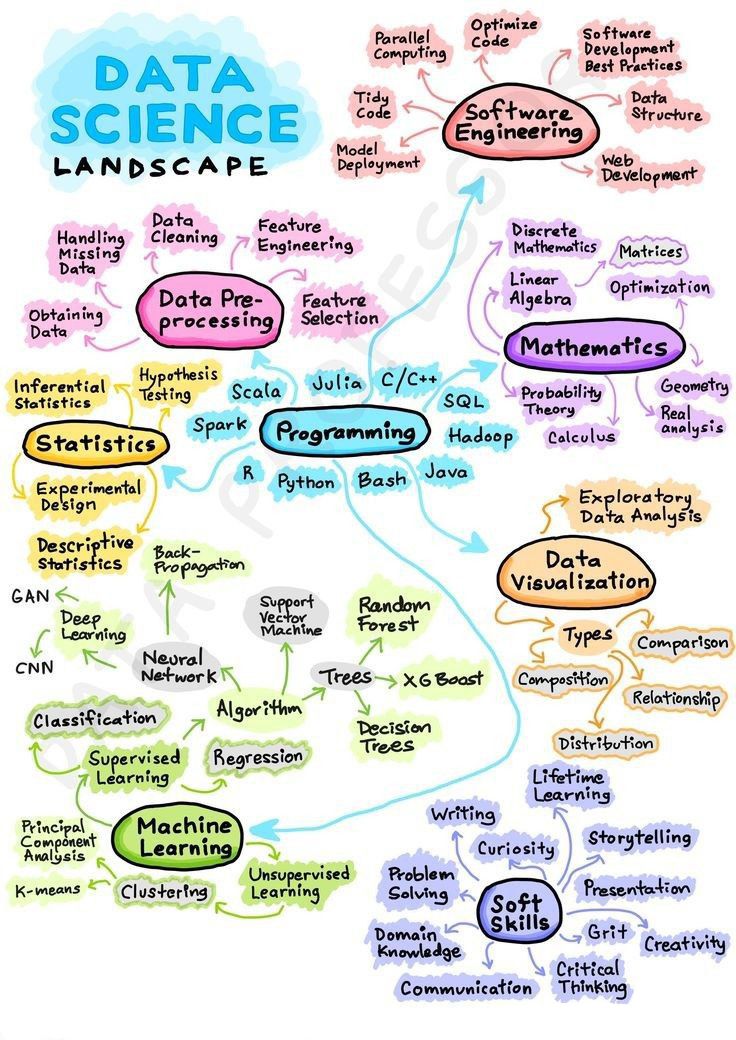 DATA
SCIENCE
LANDSCAPE
Parallel
Computing
Optimize
Code
Software
Development
Best Practices
Tidy
Code
Software
Engineering
Data
Structure
Model
Deployment
Web
Development
Handling
Missing
Data
Data
Cleaning
Feature
Engineering
Obtaining
Data
Data Pre-
processing
Feature
Selection
Discrete
Mathematics
Matrices
Linear
Algebra
Optimization
Mathematics
Probability
Theory
Geometry
Calculus
Real
analysis
Inferential
Statistics
Hypothesis
Testing
Statistics
Experimental
Design
Descriptive
Statistics
Scala
Julia
C/C++
SQL
Spark
Programming
Hadoop
R
Python
Bash
Java
Exploratory
Data Analysis
Data
Visualization
Types
Comparison
Composition
Relationship
Distribution
Back-
Propagation
GAN
Deep
Learning
CNN
Neural
Network
Support
Vector
Machine
Random
Forest
Trees
XG Boost
Algorithm
Decision
Trees
Classification
Supervised
Learning
Regression
Machine
Learning
Principal
Component
Analysis
K-means
Clustering
Unsupervised
Learning
Lifetime
Learning
Writing
Curiosity
Storytelling
Problem
Solving
Soft
Skills
Presentation
Domain
Knowledge
Grit
Creativity
Communication
Critical
Thinking
DATA PROFESSOR